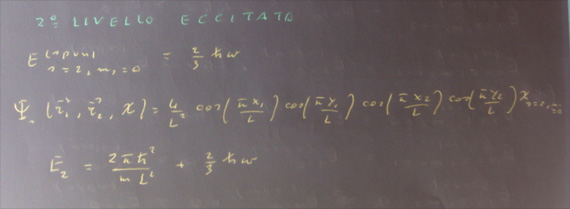 2º LIVELLO ECCITATO
E^{(spin)}_{s=2, m_s=0} = 2/3 ħω
Ψ. (r⃗₁, r⃗₂, χ) = 4/L² cos(πx₁/L) cos(πy₁/L) cos(πx₂/L) cos(πy₂/L) χ_{s=2, m_s=0}
E₂ = 2πħ²/mL² + 2/3 ħω